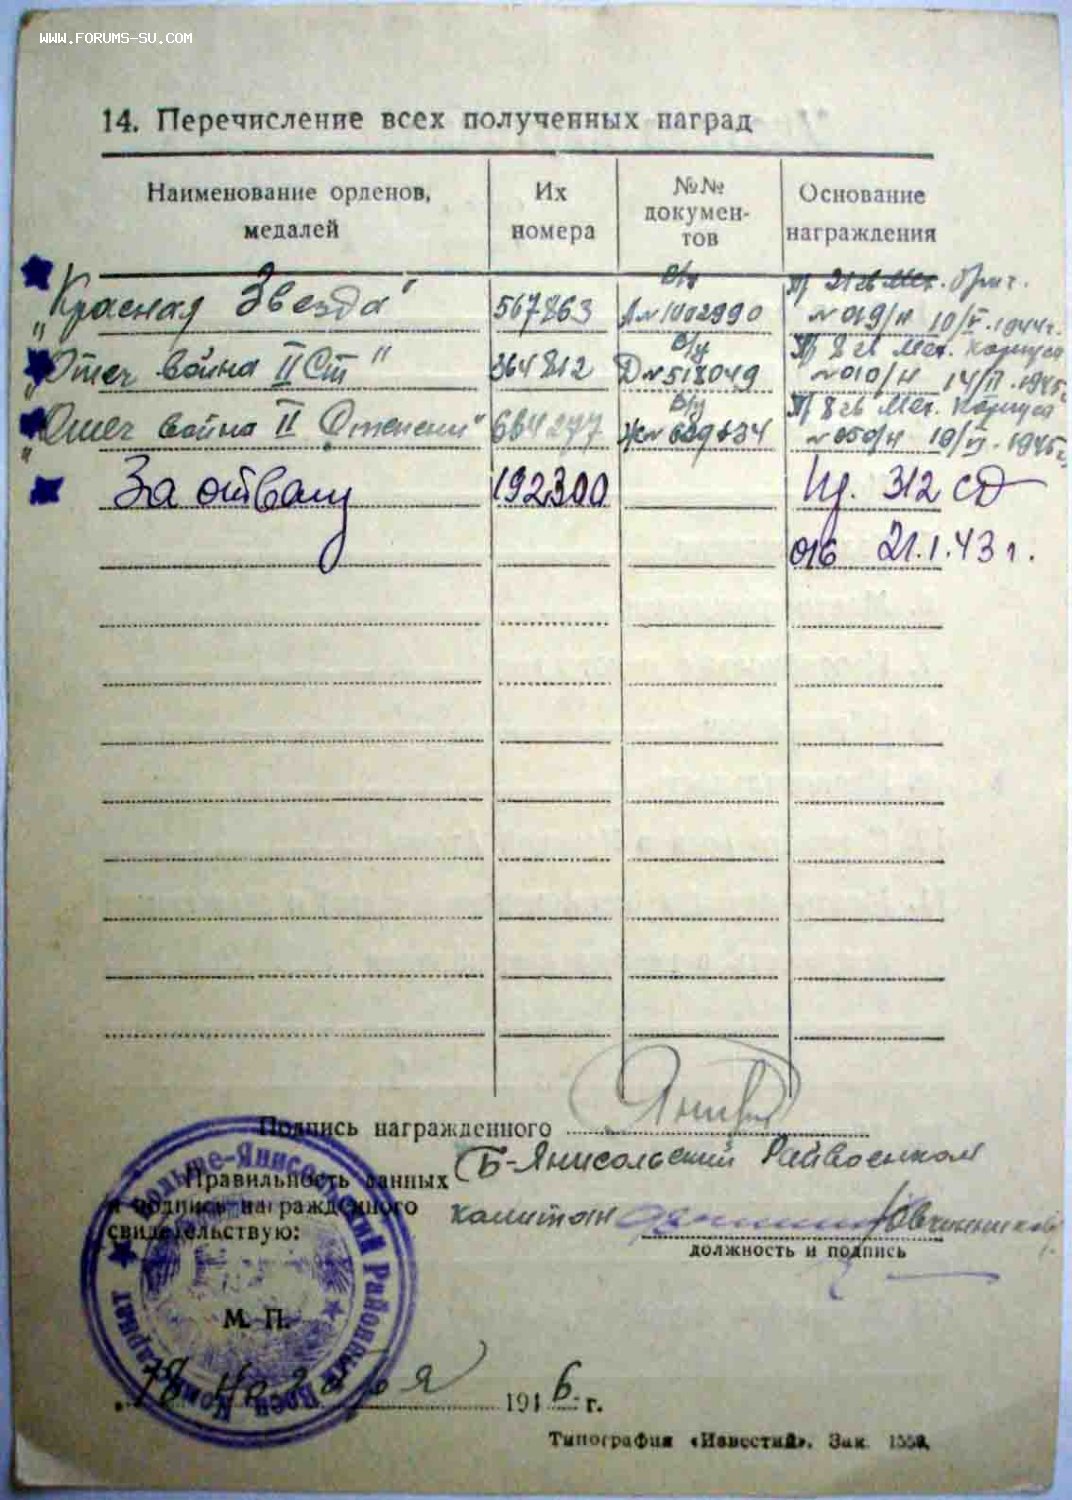 WWW.FORUMS-SU.COM
14. Перечисление всех полученных наград
Наименование орденов, медалей | Их номера | №№ документов | Основание награждения
„Красная Звезда" 567863 в/у А № 1002990 Пр 21 гв Мех. бриг. № 019/н 10/V.1944г.
„Отеч Война II Ст" 364812 в/у Д № 518049 Пр 8 гв Мех. Корпуса № 010/н 14/II.1945г
„Отеч война II Степени" 664277 в/у Ж № 689634 Пр 8 гв Мех. Корпуса № 050/н 10/VI.1945г
За отвагу 192300 Пр. 312 СД
от 21.1.43 г.
Подпись награжденного
Правильность данных Б-Янисольский Райвоенком
и подпись награжденного
свидетельствую: капитан Овчинников
должность и подпись
Больше-Янисольский Районный Воен Комиссариат
М. П.
18 ноября 1946 г.
Типография «Известий». Зак.